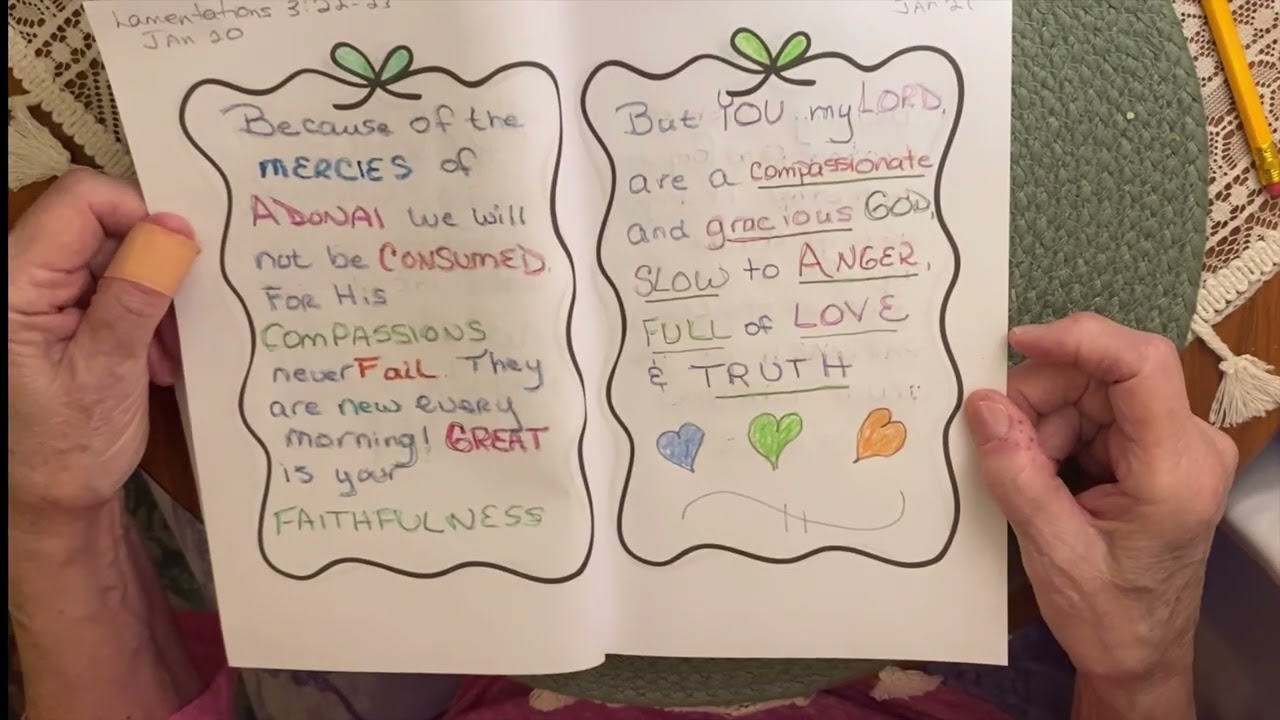 Lamentations 3:22-23
Jan 20
Because of the
MERCIES of
ADONAI we will
not be CONSUMED.
FOR His
COMPASSIONS
never Fail. They
are new every
morning! GREAT
is your
FAITHFULNESS
Jan 21
But YOU my LORD,
are a compassionate
and gracious GOD,
SLOW to ANGER,
FULL of LOVE
& TRUTH